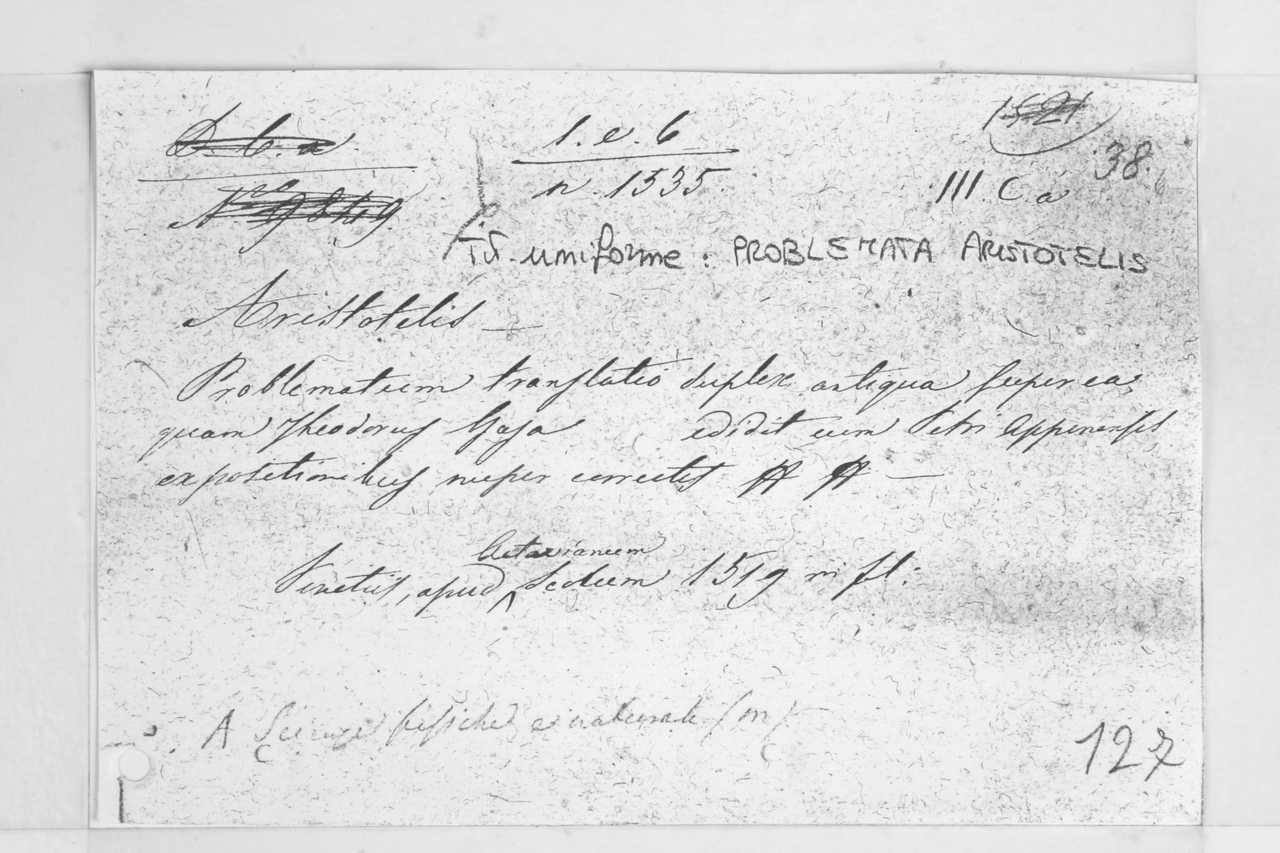 D. C. a
1. e. 6
1521
38.
N.º 9849
n. 1535.
III. C a
Tit. uniforme: PROBLEMATA ARISTOTELIS
Aristotelis —
Problematum translatio duplex antiqua super ea
quam Theodorus Gasa edidit cum Petri Apponensis
expositionibus nuper correctis —
Octavianum
Venetiis, apud Scotum 1519 in fl:
A Scienze fisiche e naturale (m)
127